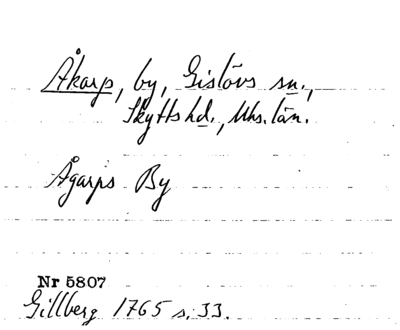 Åkarp, by, Gislövs sn.,
Skytts hd., Mhs. län.
Ågarps By
Nr 5807
Gillberg 1765 s. 33.